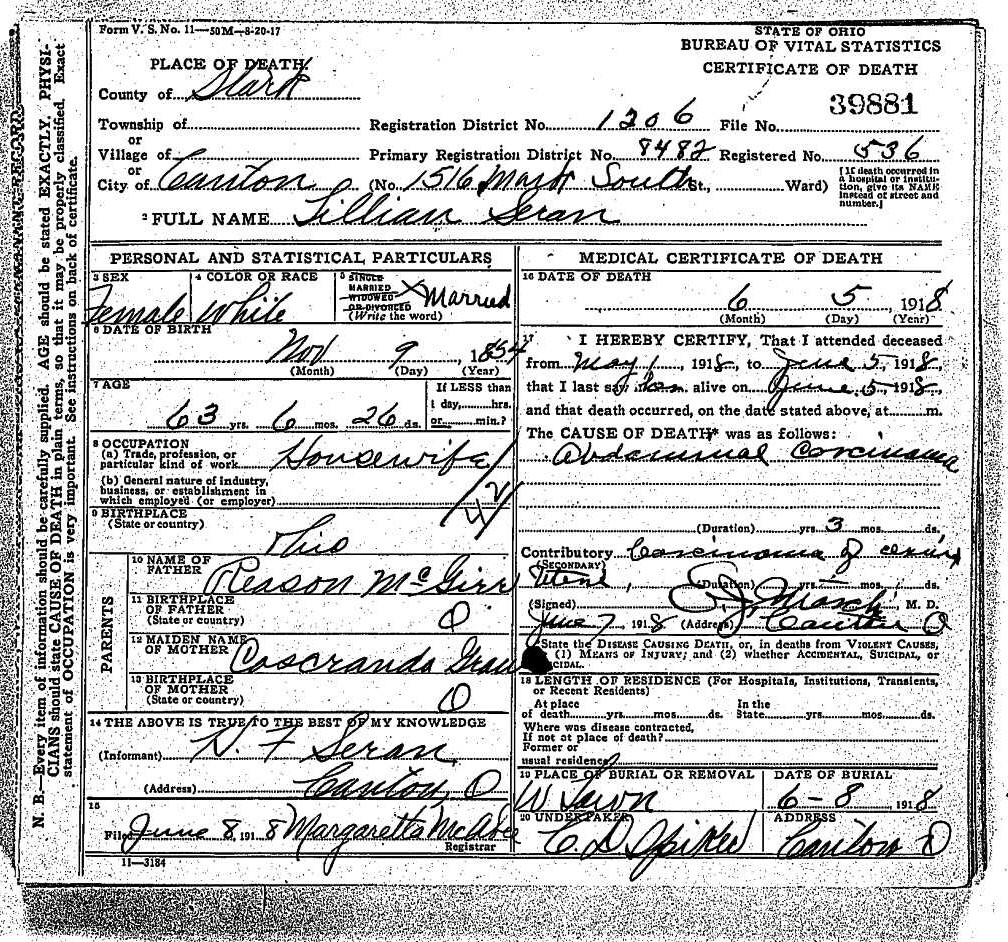 Form V. S. No. 11—50M—8-20-17
STATE OF OHIO
BUREAU OF VITAL STATISTICS
CERTIFICATE OF DEATH
PLACE OF DEATH
County of Stark
39881
Township of Registration District No. 1206 File No.
or
Village of Primary Registration District No. 8482 Registered No. 536
or
City of Canton (No. 1516 Mark South St., Ward)
[If death occurred in
a hospital or institu-
tion, give its NAME
instead of street and
number.]
2 FULL NAME Lillian Seran
PERSONAL AND STATISTICAL PARTICULARS
3 SEX
Female
4 COLOR OR RACE
White
5 SINGLE
MARRIED
WIDOWED
OR DIVORCED
(Write the word)
X Married
6 DATE OF BIRTH
Nov 9, 1854
(Month) (Day) (Year)
7 AGE
63 yrs. 6 mos. 26 ds.
If LESS than
1 day, hrs.
or min.?
8 OCCUPATION
(a) Trade, profession, or
particular kind of work Housewife
(b) General nature of industry,
business, or establishment in
which employed (or employer)
9 BIRTHPLACE
(State or country)
Ohio
PARENTS
10 NAME OF
FATHER Reason McGirr
11 BIRTHPLACE
OF FATHER
(State or country) O
12 MAIDEN NAME
OF MOTHER
13 BIRTHPLACE
OF MOTHER
(State or country) O
14 THE ABOVE IS TRUE TO THE BEST OF MY KNOWLEDGE
(Informant) Seran
(Address) Canton O
15
Filed June 8, 1918 Margaretta
Registrar
11—3184
MEDICAL CERTIFICATE OF DEATH
16 DATE OF DEATH
6 5 1918
(Month) (Day) (Year)
17 I HEREBY CERTIFY, That I attended deceased
from May 1, 1918, to June 5, 1918,
that I last saw alive on June 5, 1918,
and that death occurred, on the date stated above, at m.
The CAUSE OF DEATH* was as follows:
Abdominal Carcinoma
(Duration) yrs. 3 mos. ds.
Contributory Carcinoma of cervix
(SECONDARY)
(Duration) yrs. mos. ds.
(Signed) March, M. D.
June 7, 1918 (Address) Canton O
State the DISEASE CAUSING DEATH, or, in deaths from VIOLENT CAUSES,
(1) MEANS OF INJURY; and (2) whether ACCIDENTAL, SUICIDAL, or
CIDAL.
18 LENGTH OF RESIDENCE (For Hospitals, Institutions, Transients,
or Recent Residents)
At place
of death yrs. mos. ds.
In the
State yrs. mos. ds.
Where was disease contracted,
If not at place of death?
Former or
usual residence
19 PLACE OF BURIAL OR REMOVAL
W Lawn
DATE OF BURIAL
6-8 1918
20 UNDERTAKER
ADDRESS
Canton O
N. B.—Every item of information should be carefully supplied. AGE should be stated EXACTLY. PHYSI-
CIANS should state CAUSE OF DEATH in plain terms, so that it may be properly classified. Exact
statement of OCCUPATION is very important. See instructions on back of certificate.